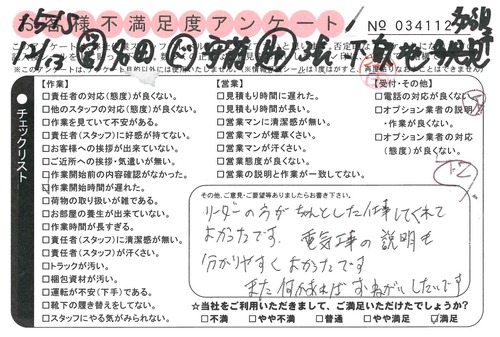 お客様不満足度アンケート
№ 034112
(※本アンケートは、アンケート目的以外には使用いたしません。
再度貼りなおすことはできません)
チェックリスト
【作業】
□責任者の対応(態度)が良くない。
□他のスタッフの対応(態度)が良くない。
□作業を見ていて不安がある。
□責任者(スタッフ)に好感が持てない。
□お客様への挨拶が出来ていない。
□ご近所への挨拶・気遣いが無い。
□作業開始前の内容確認がなかった。
□作業開始時間が遅れた。
□荷物の取り扱いが雑である。
□お部屋の養生が出来ていない。
□作業時間が長すぎる。
□責任者(スタッフ)に清潔感が無い。
□責任者(スタッフ)が汗くさい。
□トラックが汚い。
□梱包資材が汚い。
□運転が不安(下手)である。
□靴下の履き替えをしてない。
□スタッフにやる気がみられない。
【営業】
□見積もり時間に遅れた。
□見積もり時間が長い。
□営業マンに清潔感が無い。
□営業マンが煙草くさい。
□営業マンが汗くさい。
□営業態度が良くない。
□営業の説明と作業が一致してない。
【受付・その他】
□電話の対応が良くない
□オプション業者の説明
・作業が良くない。
□オプション業者の対応
(態度)が良くない。
その他、ご意見・ご要望等ありましたらお書き下さい。
リーダーの方が ちゃんとした仕事してくれて
よかったです。電気工事の説明も
分かりやすくよかったです
また何かあれば おねがいしたいです
☆当社をご利用いただきまして、ご満足いただけたでしょうか?
□不満 □やや不満 □普通 □やや満足 ☑満足